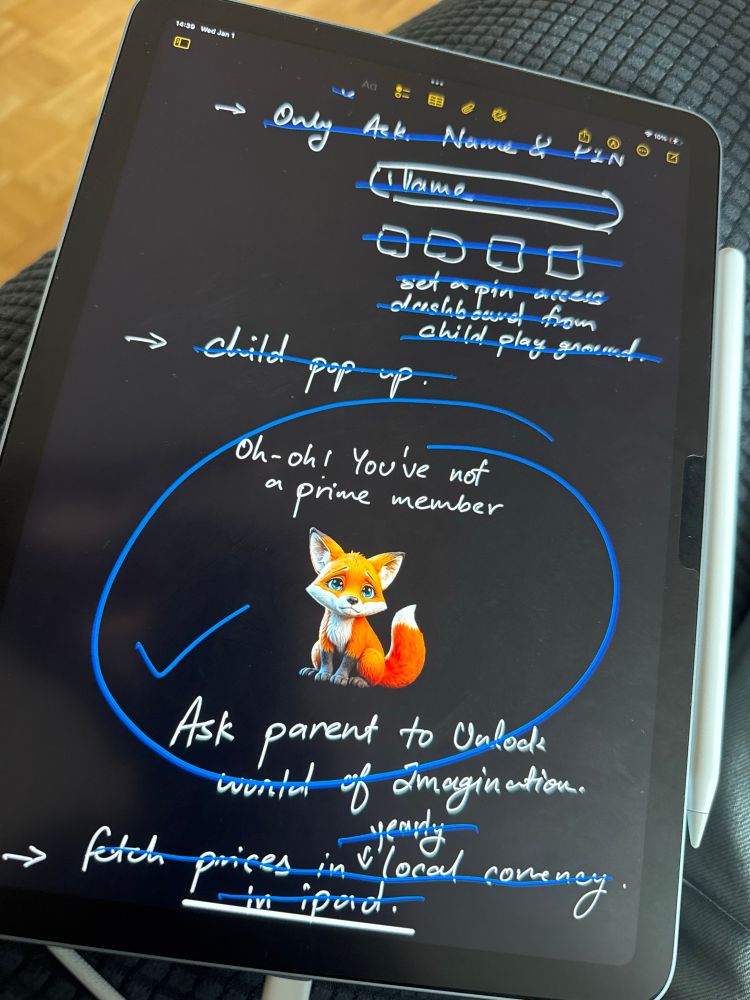 14:39 Wed Jan 1
10%
Aa
→ Only Ask Name & PIN
Name
set a pin access
dashboard from
child play ground.
→ child pop up.
Oh-oh! You've not
a prime member
Ask parent to Unlock
world of Imagination.
yearly
→ fetch prices in local correncey.
in ipad.